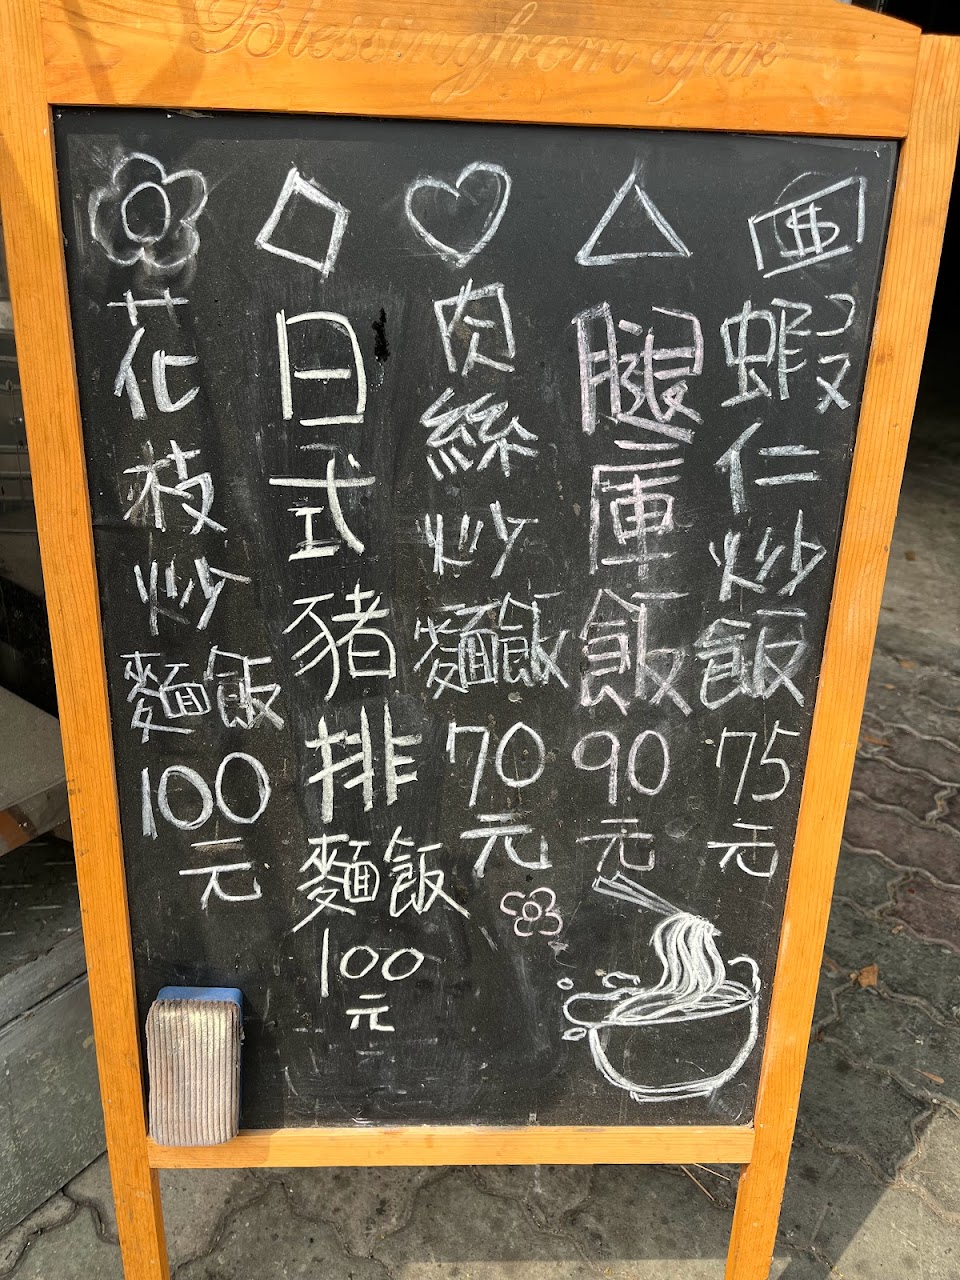 Blessing from afar
$
蝦仁炒飯75元
腿庫飯90元
肉絲炒麵飯70元
日式豬排麵飯100元
花枝炒麵飯100元